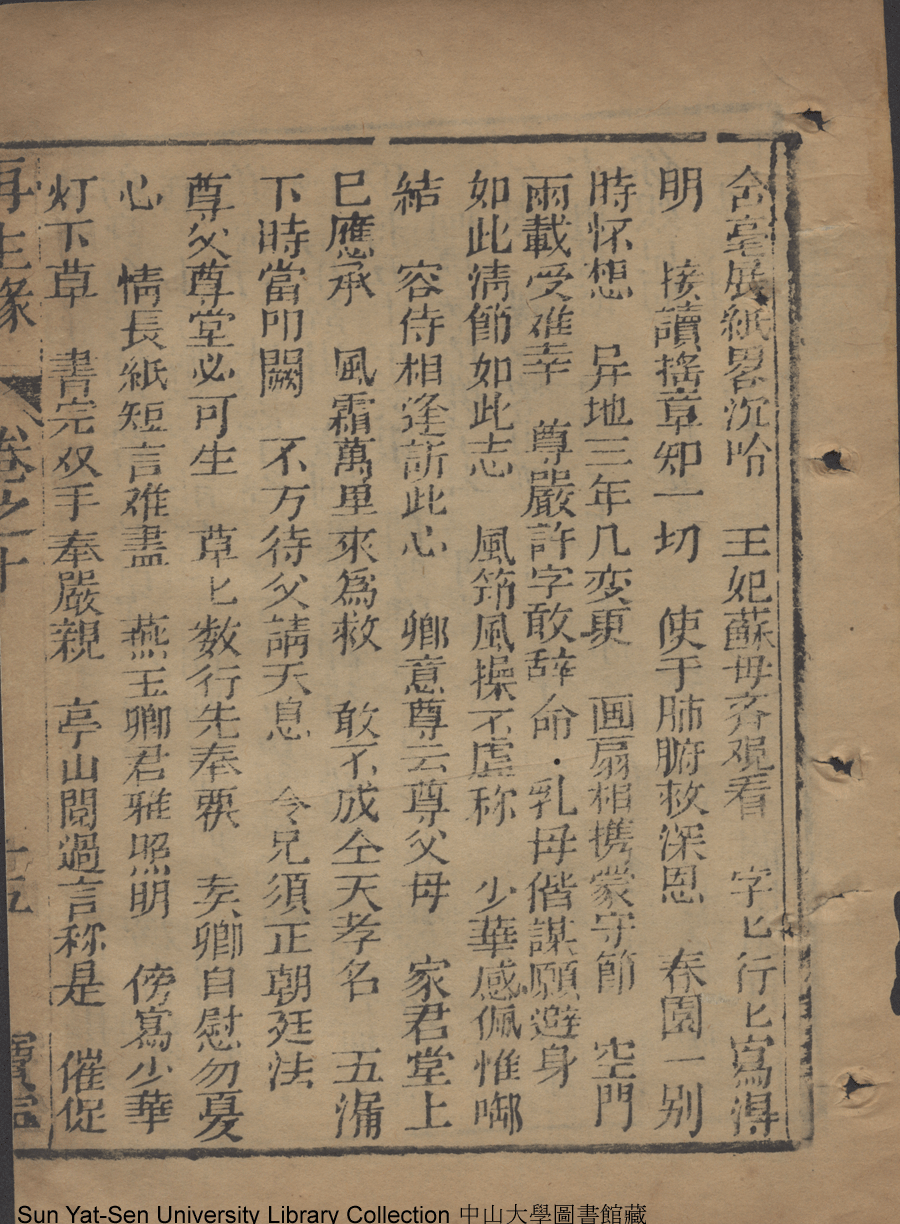 含毫展紙畧沉吟　王妃蘇母齐观看　字匕行匕寫得
明　接讀搖章知一切　使于肺腑救深恩　春園一别
時怀想　异地三年几变更　画扇相携蒙守節　空門
兩載受难幸　尊嚴許字敢辞命・乳母偕謀願避身
如此清節如此志　風筠風操不虚称　少華感佩惟啣
結　容侍相逢訴此心　卿意尊云尊父母　家君堂上
已應承　風霜萬里來為救　敢不成仝天孝名　五漏
下時當叩闕　不方待父請天息　令兄須正朝廷法
尊父尊堂必可生　草匕数行先奉覄　矣卿自慰勿憂
心　情長紙短言难盡　燕玉卿君雅照明　傍寫少華
灯下草　書完双手奉嚴親　亭山閱過言称是　催促
再生緣　卷之十　十五
Sun Yat-Sen University Library Collection 中山大學圖書館藏